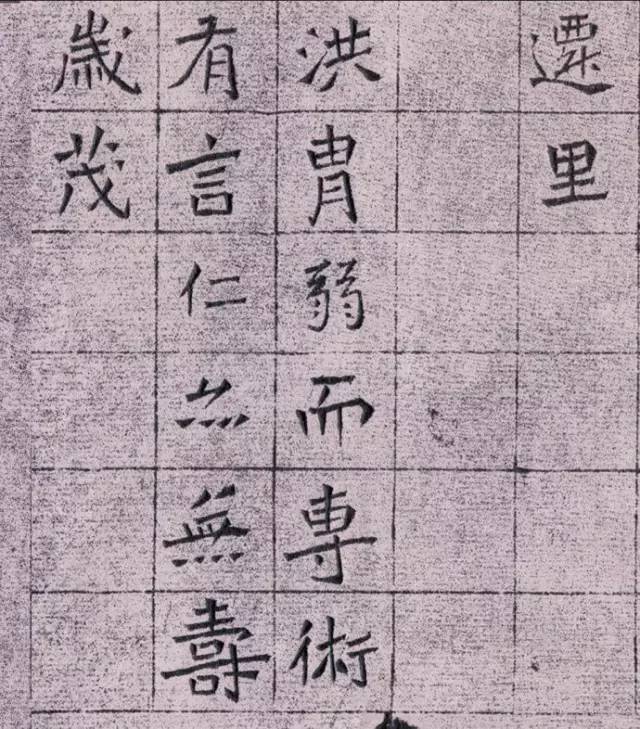 遷里
洪胄弱而專術
有言仁無壽
歲茂